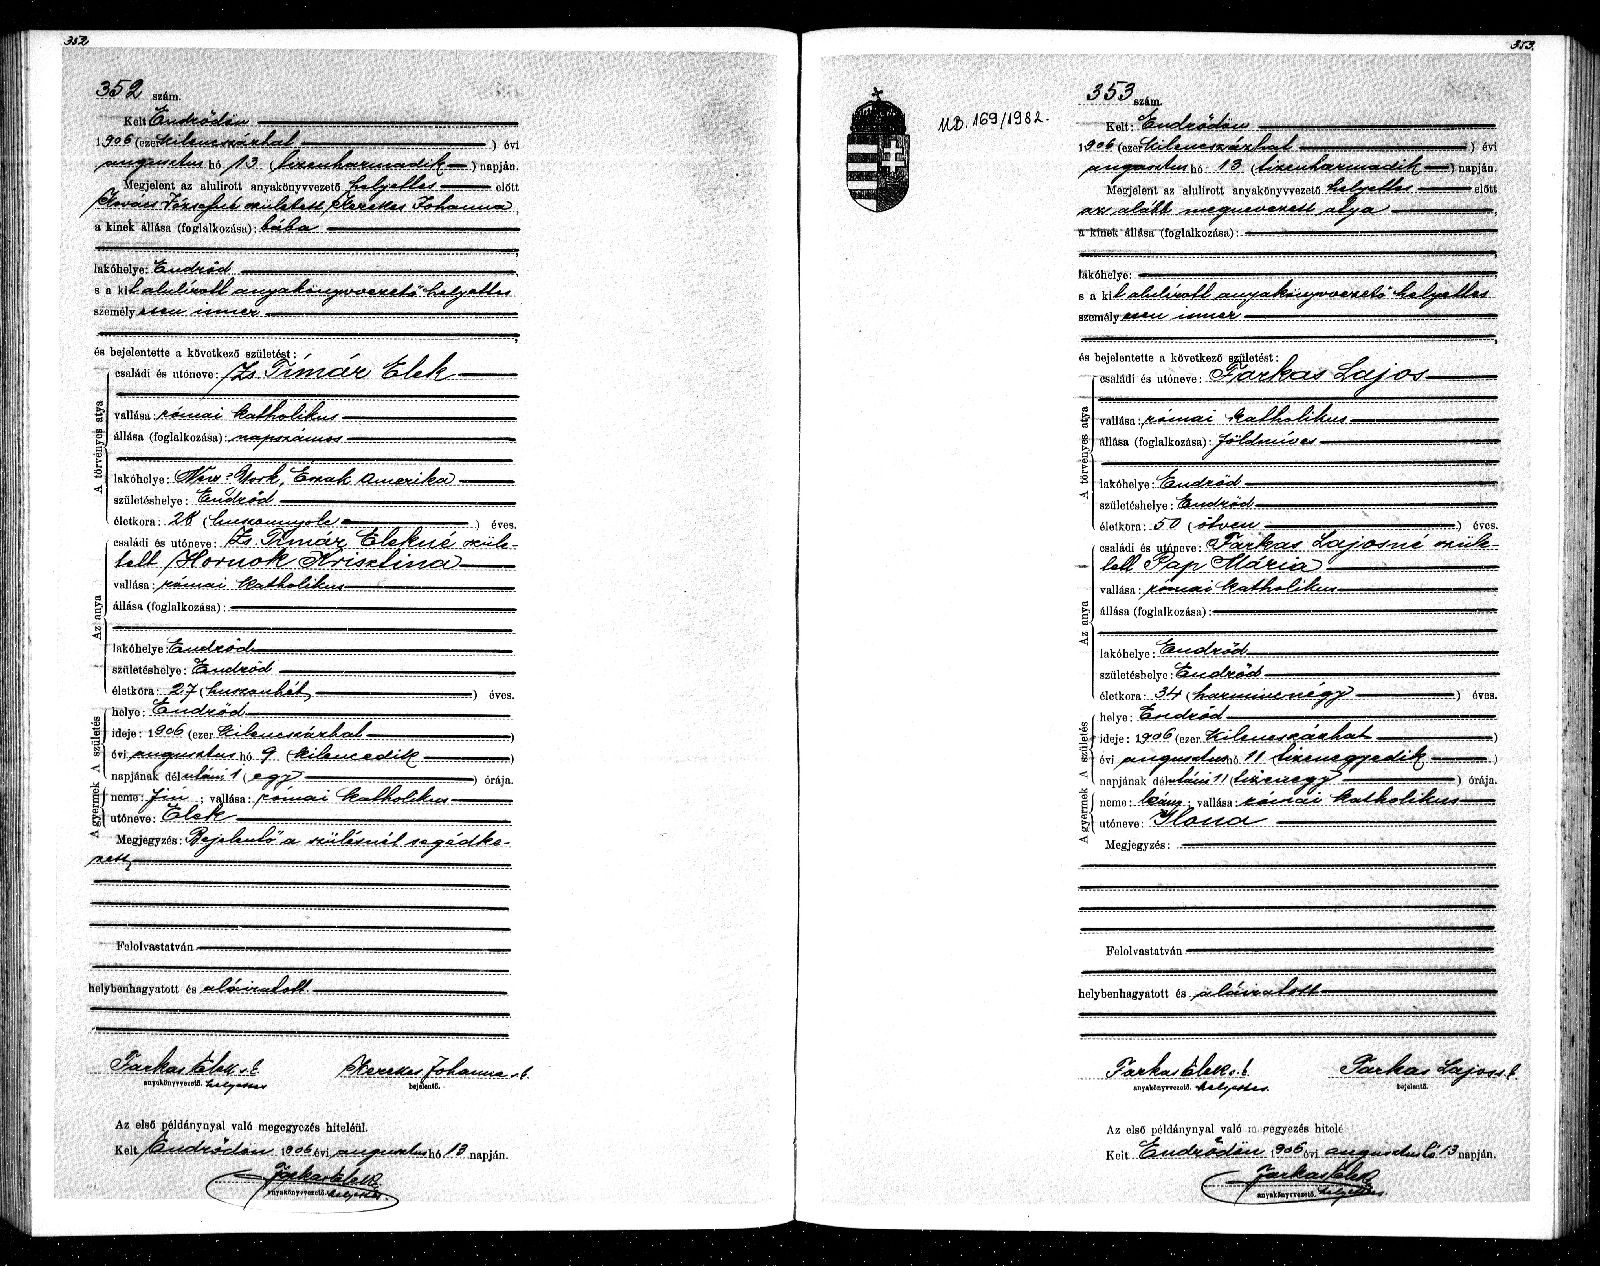 352
352 szám.
Kelt Endrődön
1906 (ezer kilenczszázhat ) évi
augusztus hó 13 (tizenharmadik ) napján.
Megjelent az alulirott anyakönyvvezető helyettes előtt
Kovács Józsefné született Kerekes Johanna
a kinek állása (foglalkozása): bába
lakóhelye: Endrőd
s a kit alulírott anyakönyvvezető helyettes
személyesen ismer
és bejelentette a következő születést:
A törvényes atya
családi és utóneve: Zs. Tímár Elek
vallása: római katholikus
állása (foglalkozása): napszámos
lakóhelye: New-York, Észak Amerika
születéshelye: Endrőd
életkora: 28 (huszonnyolc ) éves.
Az anya
családi és utóneve: Zs. Tímár Elekné szüle-
tett Hornok Krisztina
vallása: római katholikus
állása (foglalkozása):
lakóhelye: Endrőd
születéshelye: Endrőd
életkora: 27 (huszonhét ) éves.
A születés
helye: Endrőd
ideje: 1906 (ezer kilenczszázhat )
évi augusztus hó 9 (kilencedik )
napjának délutáni 1 (egy ) órája.
A gyermek
neme: fiú; vallása: római katholikus
utóneve: Elek
Megjegyzés: Bejelentő a szülésnél segédke-
zett
Felolvastatván
helybenhagyatott és aláiratott
Farkas Elek s.k. Kerekes Johanna s.k.
anyakönyvvezető. helyettes bejelentő.
Az első példánynyal való megegyezés hiteléül.
Kelt Endrődön 1906 évi augusztus hó 13 napján.
Farkas Elek
anyakönyvvezető. helyettes.
353.
M.B. 169/1982.
353 szám.
Kelt: Endrődön
1906 (ezer kilenczszázhat ) évi
augusztus hó 13 (tizenharmadik ) napján.
Megjelent az alulirott anyakönyvvezető helyettes előtt
az alább megnevezett atya
a kinek állása (foglalkozása):
lakóhelye:
s a kit alulírott anyakönyvvezető helyettes
személyesen ismer
és bejelentette a következő születést:
A törvényes atya
családi és utóneve: Farkas Lajos
vallása: római katholikus
állása (foglalkozása): földmíves
lakóhelye: Endrőd
születéshelye: Endrőd
életkora: 50 (ötven ) éves.
Az anya
családi és utóneve: Farkas Lajosné szüle-
tett Pap Mária
vallása: római katholikus
állása (foglalkozása):
lakóhelye: Endrőd
születéshelye: Endrőd
életkora: 34 (harmincnégy ) éves.
A születés
helye: Endrőd
ideje: 1906 (ezer kilenczszázhat )
évi augusztus hó 11 (tizenegyedik )
napjának délutáni 11 (tizenegy ) órája.
A gyermek
neme: leány; vallása: római katholikus
utóneve: Ilona
Megjegyzés:
Felolvastatván
helybenhagyatott és aláiratott
Farkas Elek s.k. Farkas Lajos s.k.
anyakönyvvezető. helyettes. bejelentő.
Az első példánynyal való megegyezés hitelé
Kelt Endrődön 1906 évi augusztus hó 13 napján.
Farkas Elek
anyakönyvvezető. helyettes.